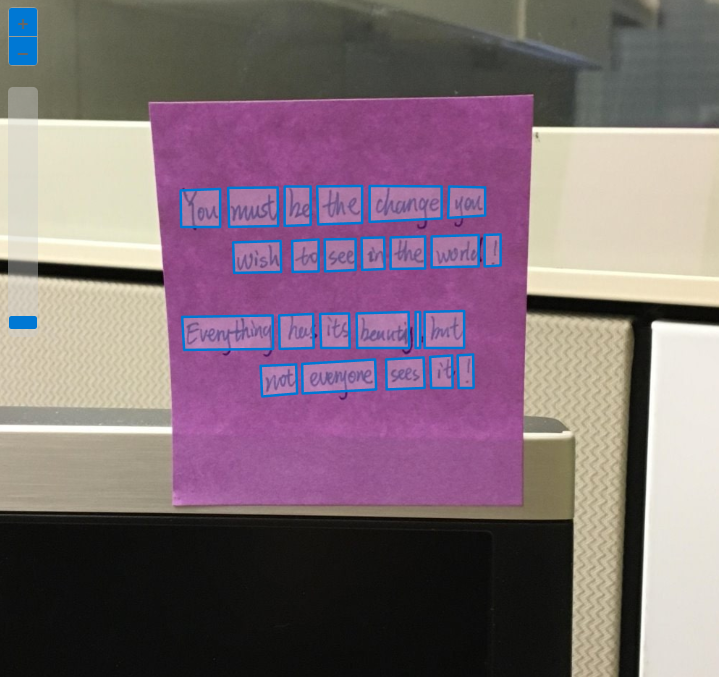 You must be the change you
wish to see in the world !
Everything has its beauty, but
not everyone sees it !